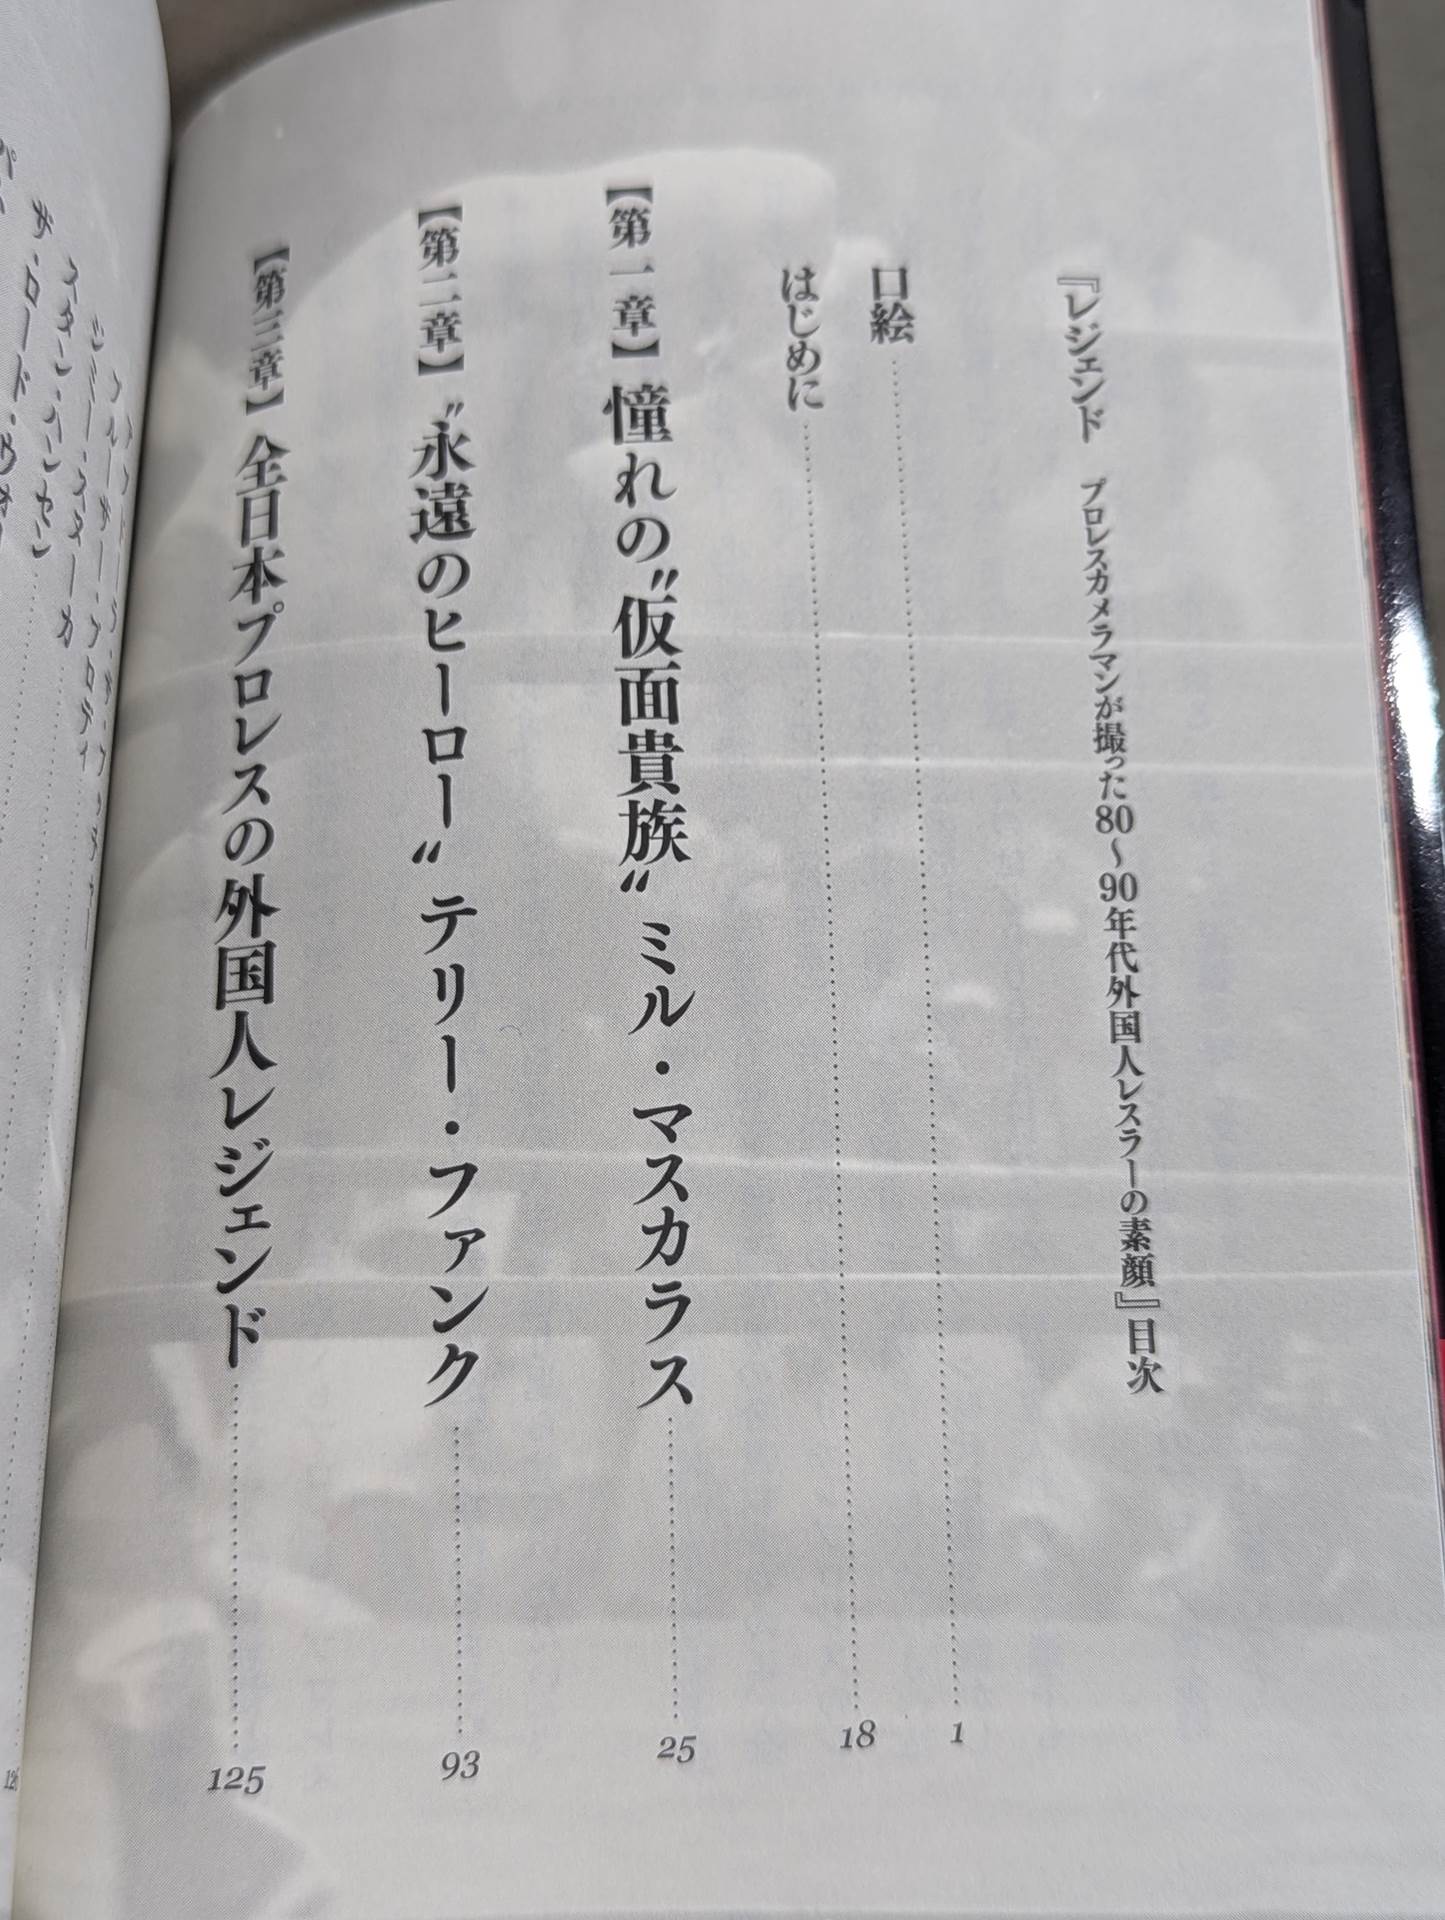 『レジェンド プロレスカメラマンが撮った80～90年代外国人レスラーの素顔』目次
口絵 1
はじめに 18
【第一章】憧れの〝仮面貴族〟ミル・マスカラス 25
【第二章】〝永遠のヒーロー〟テリー・ファンク 93
【第三章】全日本プロレスの外国人レジェンド 125
ブルーザー・ブロディ
ジミー・スヌーカ
スタン・ハンセン
ザ・ロード・